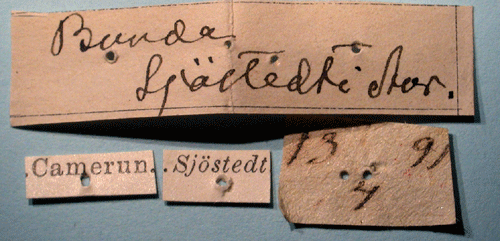 Bunda
Sjöstedti Aur.
.Camerun.
.Sjöstedt
13 91
4